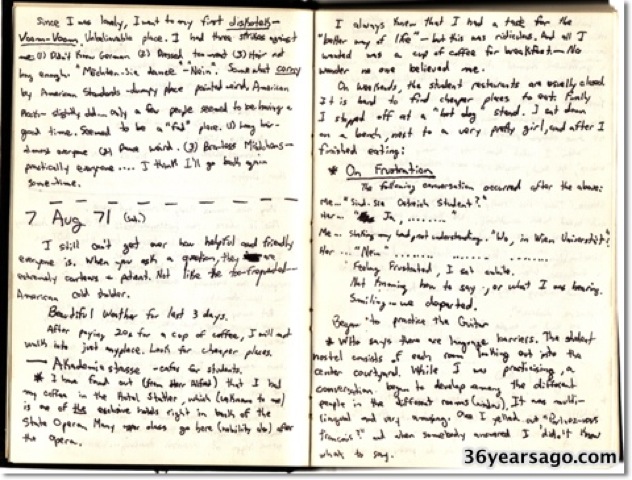 Since I was lonely, I went to my first diskotek—
Voom-Voom. Unbelievable place. I had three strikes against
me: (1) Didn't know German (2) Dressed too neat (3) Hair not
long enough. "Möchten Sie dance" - "Nein". Somewhat corny
by American Standards - dumpy place painted weird, American
music - slightly old... only a few people seemed to be having a
good time. Seemed to be a "fad" place. (1) Long hair-
almost everyone (2) Dance weird. (3) Braless Mädchens-
practically everyone .... I think I'll go back again
some-time.
7 Aug 71 (Sa.)
I still can't get over how helpful and friendly
everyone is. When you ask a question, they are
extremely courteous & patient. Not like the
American cold shoulder.
Beautiful Weather for last 3 days.
After paying 20s for a cup of coffee, I will not
walk into just anyplace. Look for cheaper places.
— Akademiestrasse - cafes for students.
* I have found out (from Herr Alfred) that I had
my coffee in the Hotel Stalher, which (unknown to me)
is one of the exclusive hotels right in back of the
State Opera. Many upper class go here (nobility also) after
the Opera.
I always knew that I had a taste for the
"better way of life" - but this was ridiculous. And all I
wanted was a cup of coffee for breakfast - No
wonder no one believed me.
On weekends, the student restaurants are usually closed
It is hard to find cheaper places to eat. Finally
I stopped off at a "hot dog" stand. I sat down
on a bench, next to a very pretty girl, and after I
finished eating:
* On Frustration
The following conversation occurred after the above:
Me... "Sind Sie Ostreich Student?"
Her... "Ja, ........"
Me... Shaking my head, not understanding. "Wo, in Wien Universität?"
Her ... "Nein" .......... ........
Feeling Frustrated, I sat awhile.
Not knowing how to say, or what I was hearing.
Smiling - we departed.
Began to practice the Guitar
* Who says there are language barriers. The student
hostel consists of each room looking out into the
center courtyard. While I was practicing, a
conversation began to develop among the different
people in the different rooms (windows). It was multi-
lingual and very amusing. Once I yelled out "Parlez-vous
francais?" and when somebody answered I didn't know
what to say.
36yearsago.com